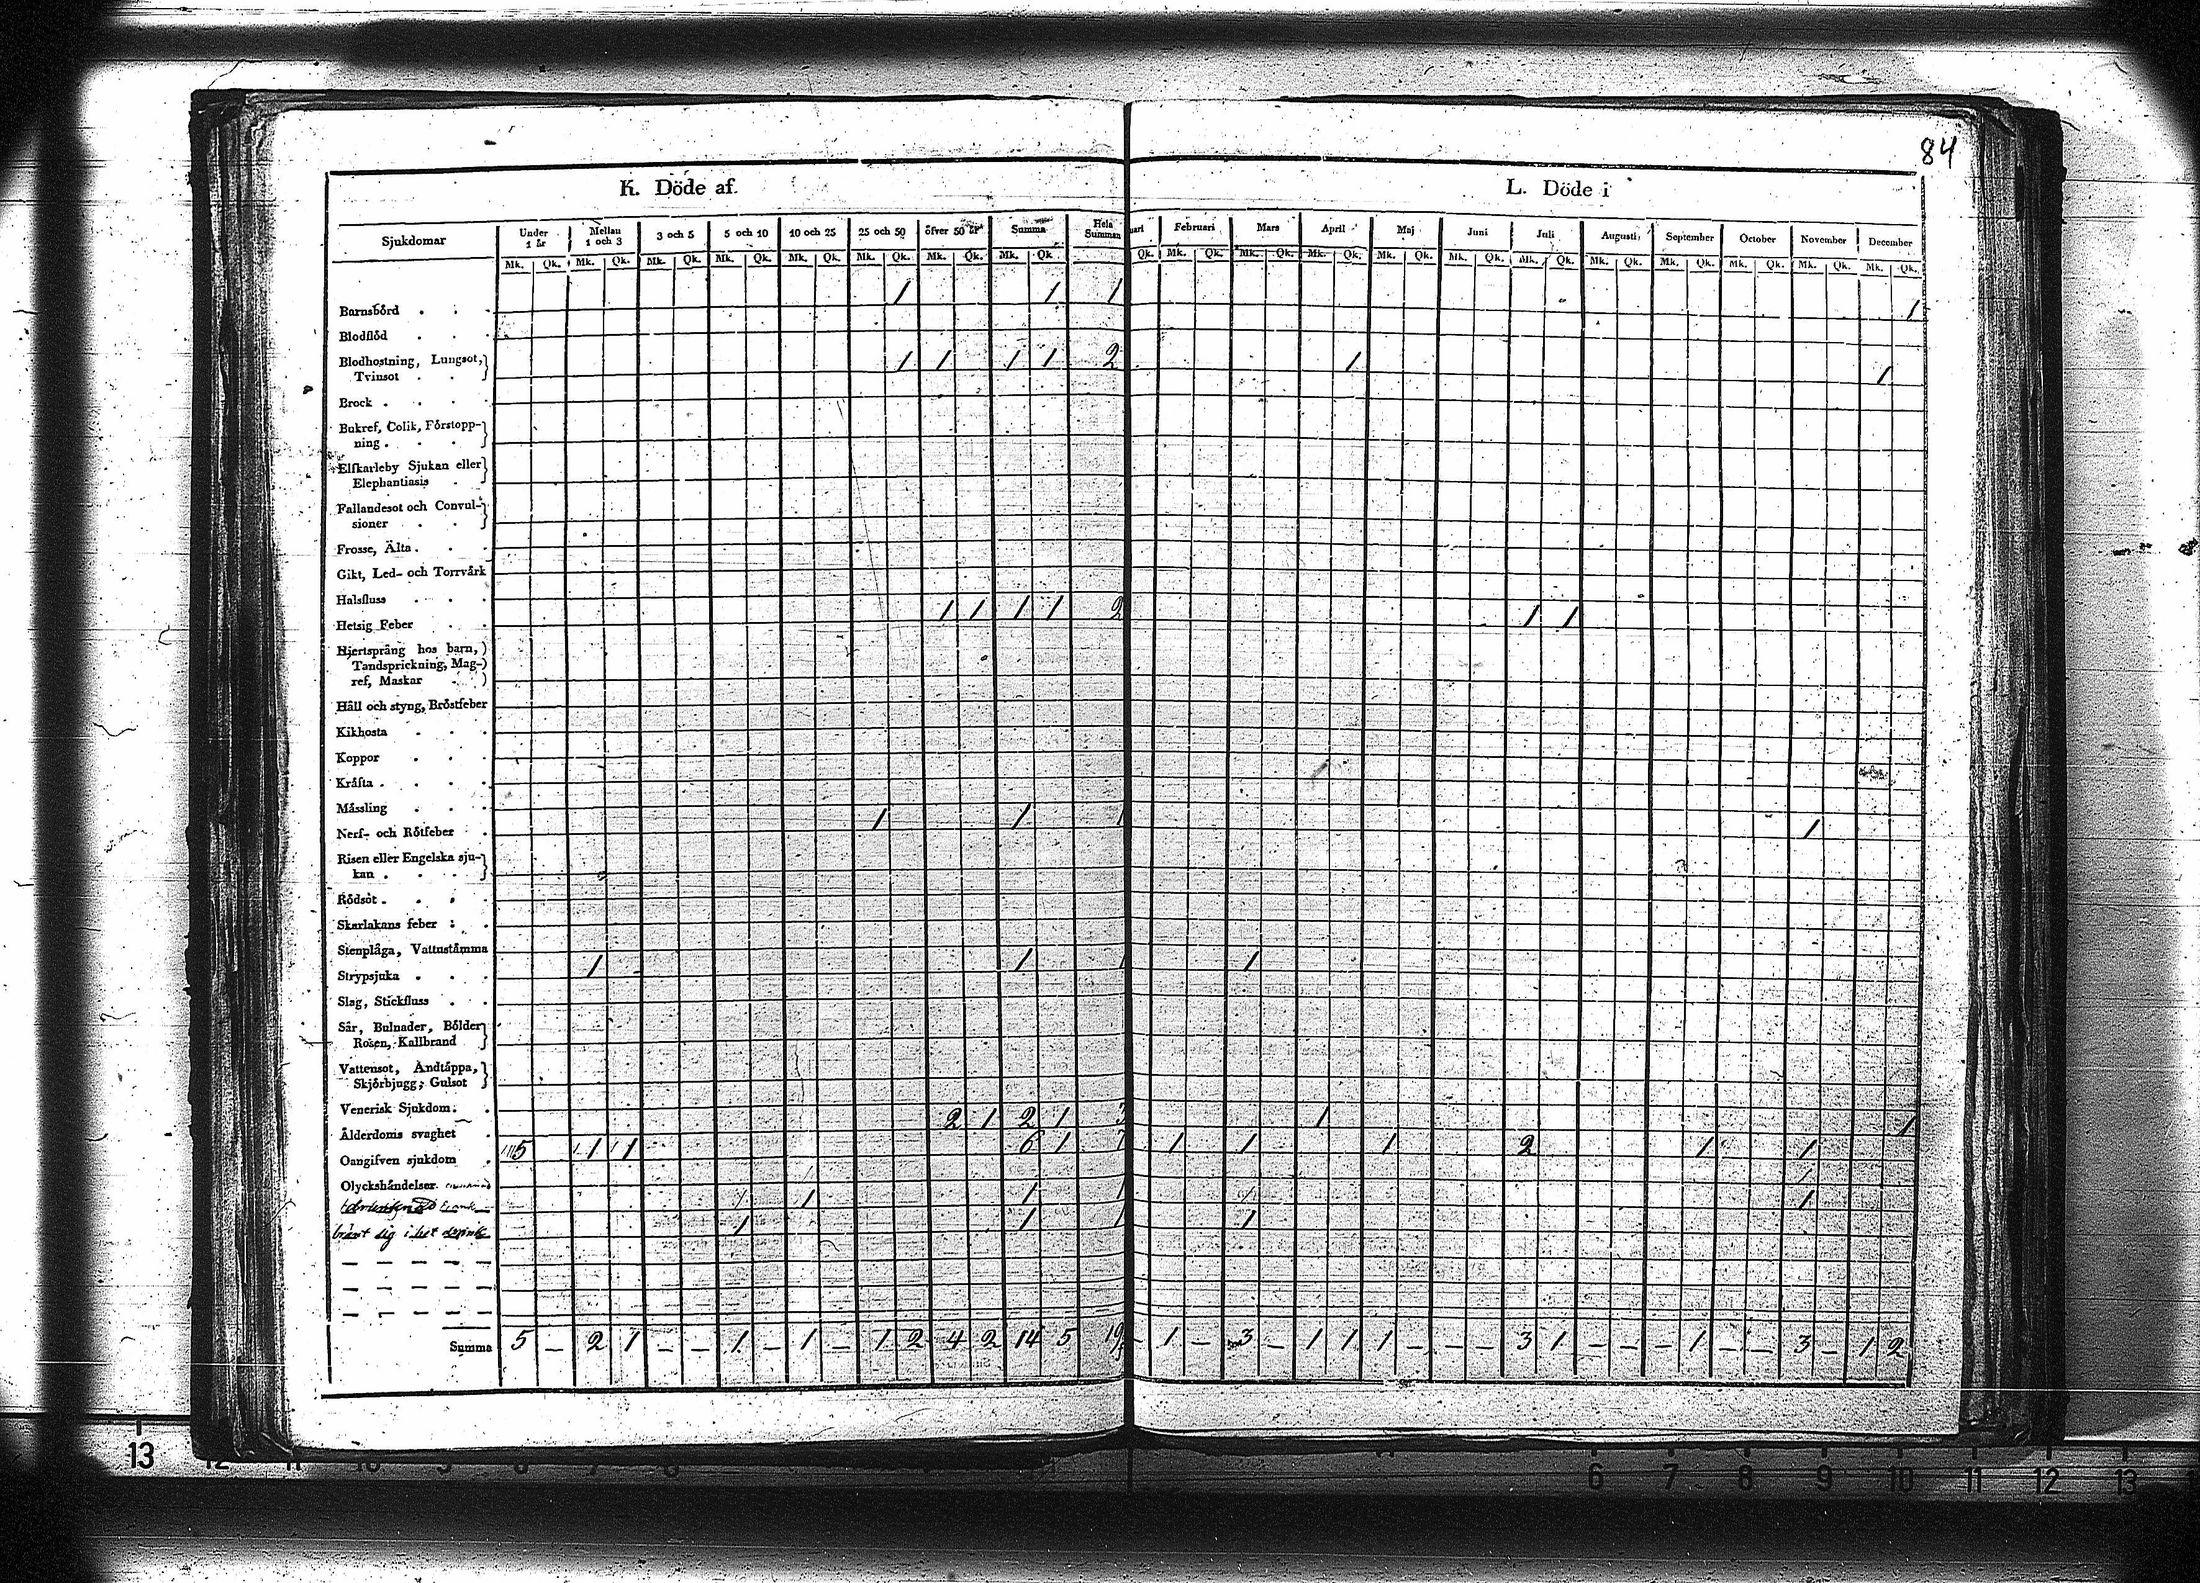 84
K. Döde af.
L. Döde i
Sjukdomar Under 1 år Mellan 1 och 3 3 och 5 5 och 10 10 och 25 25 och 50 öfver 50 år Summa Hela Summan
uari Februari Mars April Maj Juni Juli Augusti September October November December
Mk. Qk. Mk. Qk. Mk. Qk. Mk. Qk. Mk. Qk. Mk. Qk. Mk. Qk. Mk. Qk
Qk. Mk. Qk. Mk. Qk. Mk. Qk. Mk. Qk. Mk. Qk. Mk. Qk. Mk. Qk. Mk. Qk. Mk. Qk. Mk. Qk. Mk. Qk.
Barnsbörd 1 1 1 1
Blodflöd
Blodhostning, Lungsot,
Tvinsot 1 1 1 1 2 1 1
Brock
Bukref, Colik, Förstopp-
ning
Elfkarleby Sjukan eller
Elephantiasis
Fallandesot och Convul-
sioner
Frosse, Älta
Gikt, Led- och Torrvärk
Halsfluss
Hetsig Feber 1 1 1 1 2 1 1
Hjertsprång hos barn,
Tandsprickning, Mag-
ref, Maskar
Håll och styng, Bröstfeber
Kikhosta
Koppor
Kräfta
Mässling
Nerf- och Rötfeber 1 1 1 1
Risen eller Engelska sju-
kan
Rödsot
Skarlakans feber
Stenplåga, Vattustämma
Strypsjuka 1 1 1 1
Slag, Stickfluss
Sår, Bulnader, Bölder
Rosen, Kallbrand
Vattensot, Andtäppa,
Skjörbjugg, Gulsot
Venerisk Sjukdom
Ålderdoms svaghet 2 1 2 1 3 1 1
Oangifven sjukdom 5 1 1 6 1 7 1 1 1 2 1 1
Olyckshändelser
1 1 1 1
bränt sig i het 1 1 1 1
Summa 5 – 2 1 – – 1 – 1 – 1 2 4 2 14 5 19 – 1 – 3 – 1 1 1 – – – 3 1 – – – 1 – – 3 – 1 2
13 12 11 10 9 6 7 8
6 7 8 9 10 11 12 13